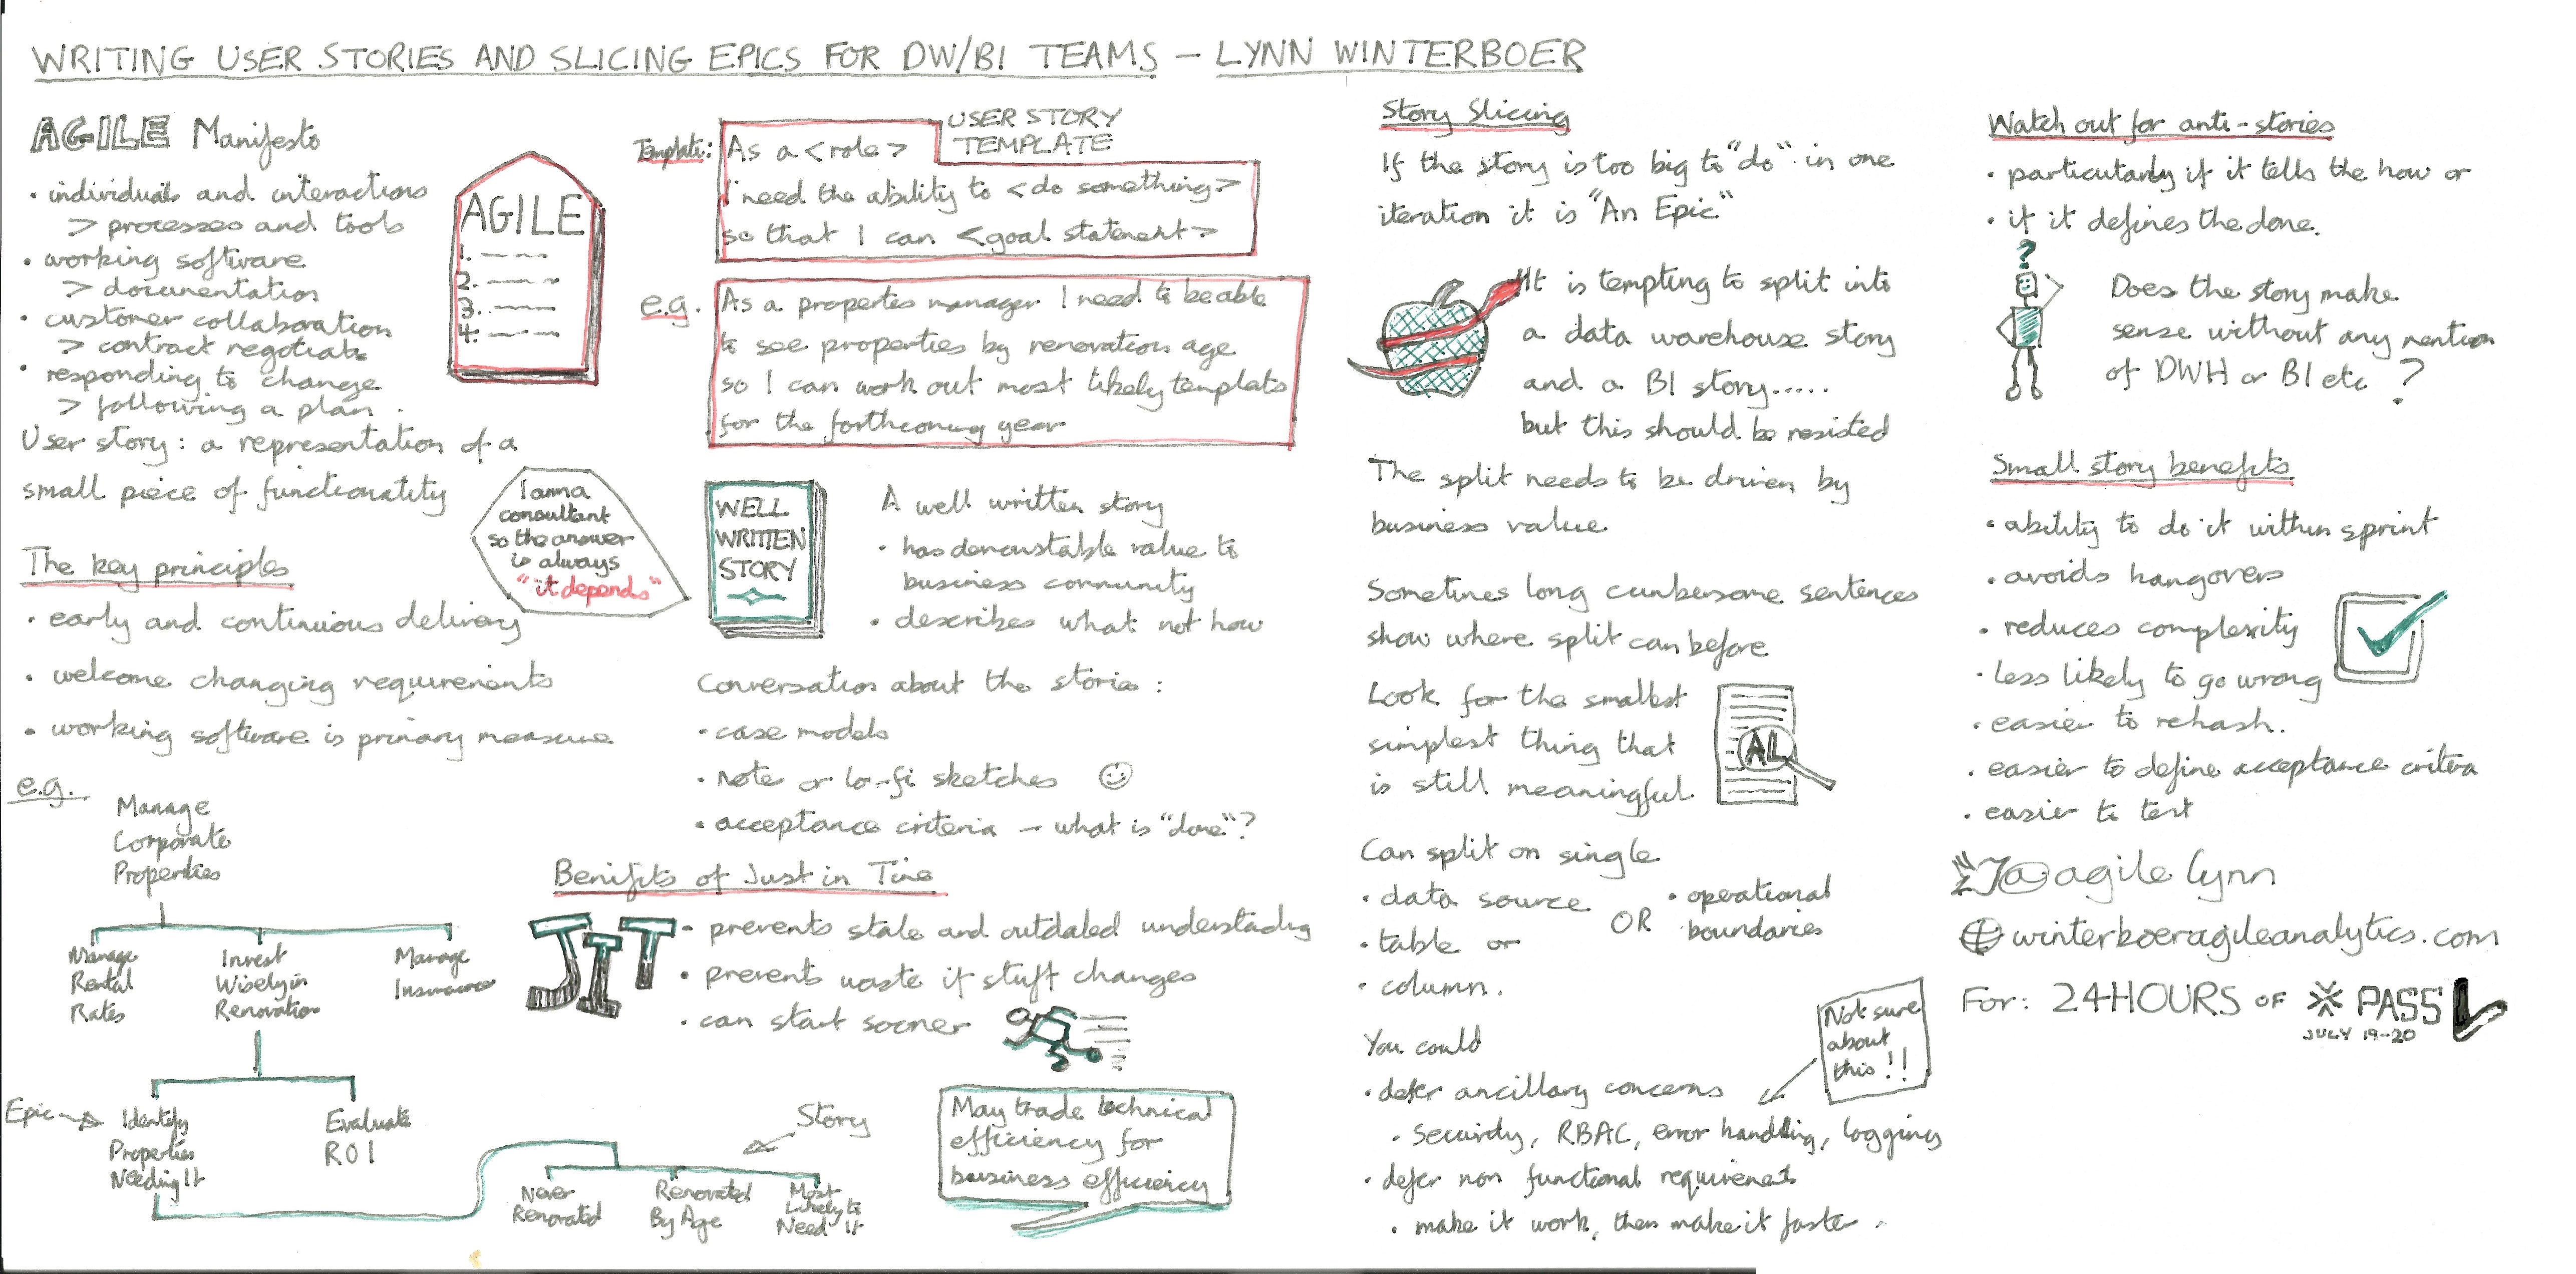 WRITING USER STORIES AND SLICING EPICS FOR DW/BI TEAMS – LYNN WINTERBOER
AGILE Manifesto
• individuals and interactions
> processes and tools
• working software
> documentation
• customer collaboration
> contract negotiate
• responding to change
> following a plan.
User story: a representation of a
small piece of functionality
AGILE
1.
2.
3.
4.
The key principles
• early and continuous delivery
• welcome changing requirements
• working software is primary measure
I am a
consultant
so the answer
is always
"it depends"
e.g.
Manage
Corporate
Properties
Manage
Rental
Rates
Invest
Wisely in
Renovation
Manage
Insurance
Epic
Identify
Properties
Needing It
Evaluate
ROI
Story
Never
Renovated
Renovated
By Age
Most
Likely to
Need It
USER STORY
TEMPLATE
Template:
As a <role>
I need the ability to <do something>
so that I can <goal statement>
e.g.
As a properties manager I need to be able
to see properties by renovation age
so I can work out most likely template
for the forthcoming year
WELL
WRITTEN
STORY
A well written story
• has demonstable value to
business community
• describes what not how
Conversation about the stories:
• case models
• note or lo-fi sketches
• acceptance criteria – what is "done"?
Benifits of Just in Time
JIT
• prevents stale and outdated understanding
• prevents waste if stuff changes
• can start sooner
May trade technical
efficiency for
business efficiency
Story Slicing
If the story is too big to "do" in one
iteration it is "An Epic"
It is tempting to split into
a data warehouse story
and a BI story.....
but this should be resisted
The split needs to be driven by
business value
Sometimes long cumbersome sentences
show where split can before
Look for the smallest
simplest thing that
is still meaningful
AL
Can split on single
• data source
• table or
• column.
OR
• operational
boundaries
You could
• defer ancillary concerns
• security, RBAC, error handling, logging
• defer non functional requirements
• make it work, then make it faster.
Not sure
about
this!!
Watch out for anti-stories
• particularly if it tells the how or
• if it defines the done.
?
Does the story make
sense without any mention
of DWH or BI etc ?
Small story benefits
• ability to do it within sprint
• avoids hangovers
• reduces complexity
• less likely to go wrong
• easier to rehash.
• easier to define acceptance critera
• easier to test
@agilelynn
winterboeragileanalytics.com
For: 24HOURS OF PASS
JULY 19-20